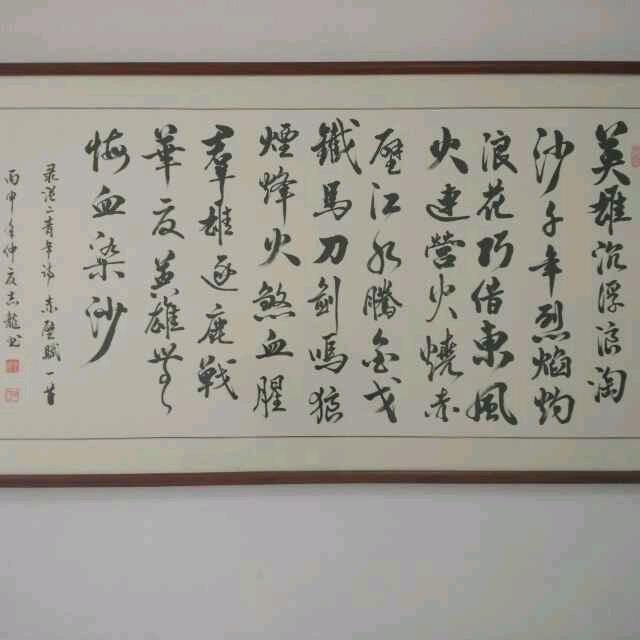 英雄沉浮浪淘
沙千年烈焰灼
浪花巧借東風
火連營火燒赤
壁江水騰金戈
鐵馬刀劍鳴狼
煙烽火煞血腥
羣雄逐鹿戰
華夏英雄無
悔血染沙
青年詩赤壁賦一首
丙申年仲夏志龍书